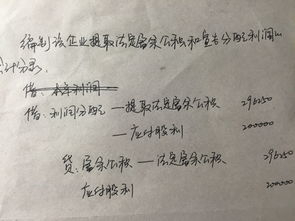 编制该企业提取法定盈余公积和宣告分配利润的
会计分录。
借:本年利润
借:利润分配—提取法定盈余公积 296250
—应付股利 200000
贷:盈余公积—法定盈余公积 296250
应付股利 200000